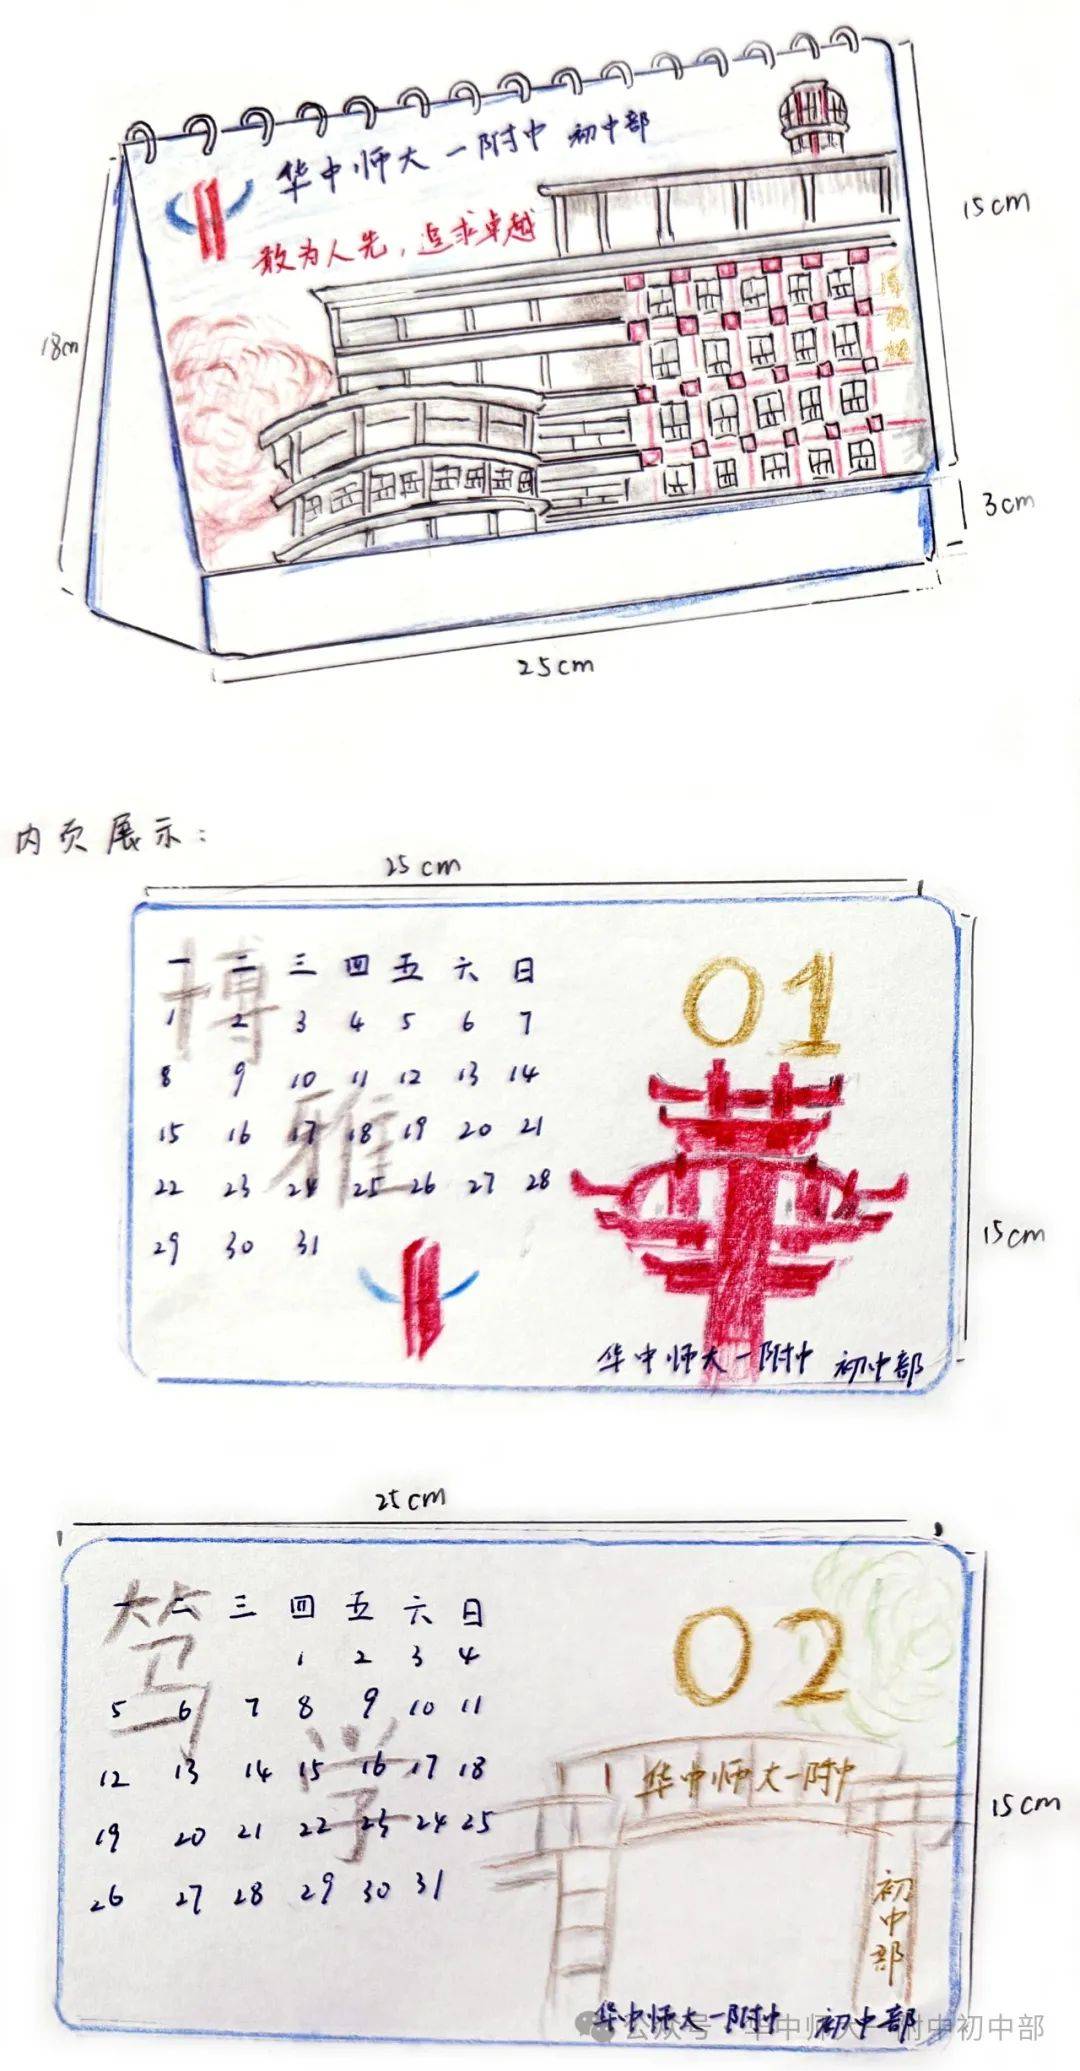 华中师大一附中 初中部
敢为人先，追求卓越
15cm
18cm
3cm
25cm
内页展示：
25cm
博雅
一 二 三 四 五 六 日
1 2 3 4 5 6 7
8 9 10 11 12 13 14
15 16 17 18 19 20 21
22 23 24 25 26 27 28
29 30 31
01
15cm
华中师大一附中 初中部
25cm
笃学
一 二 三 四 五 六 日
1 2 3 4
5 6 7 8 9 10 11
12 13 14 15 16 17 18
19 20 21 22 23 24 25
26 27 28 29 30 31
02
华中师大一附中
初中部
15cm
华中师大一附中 初中部